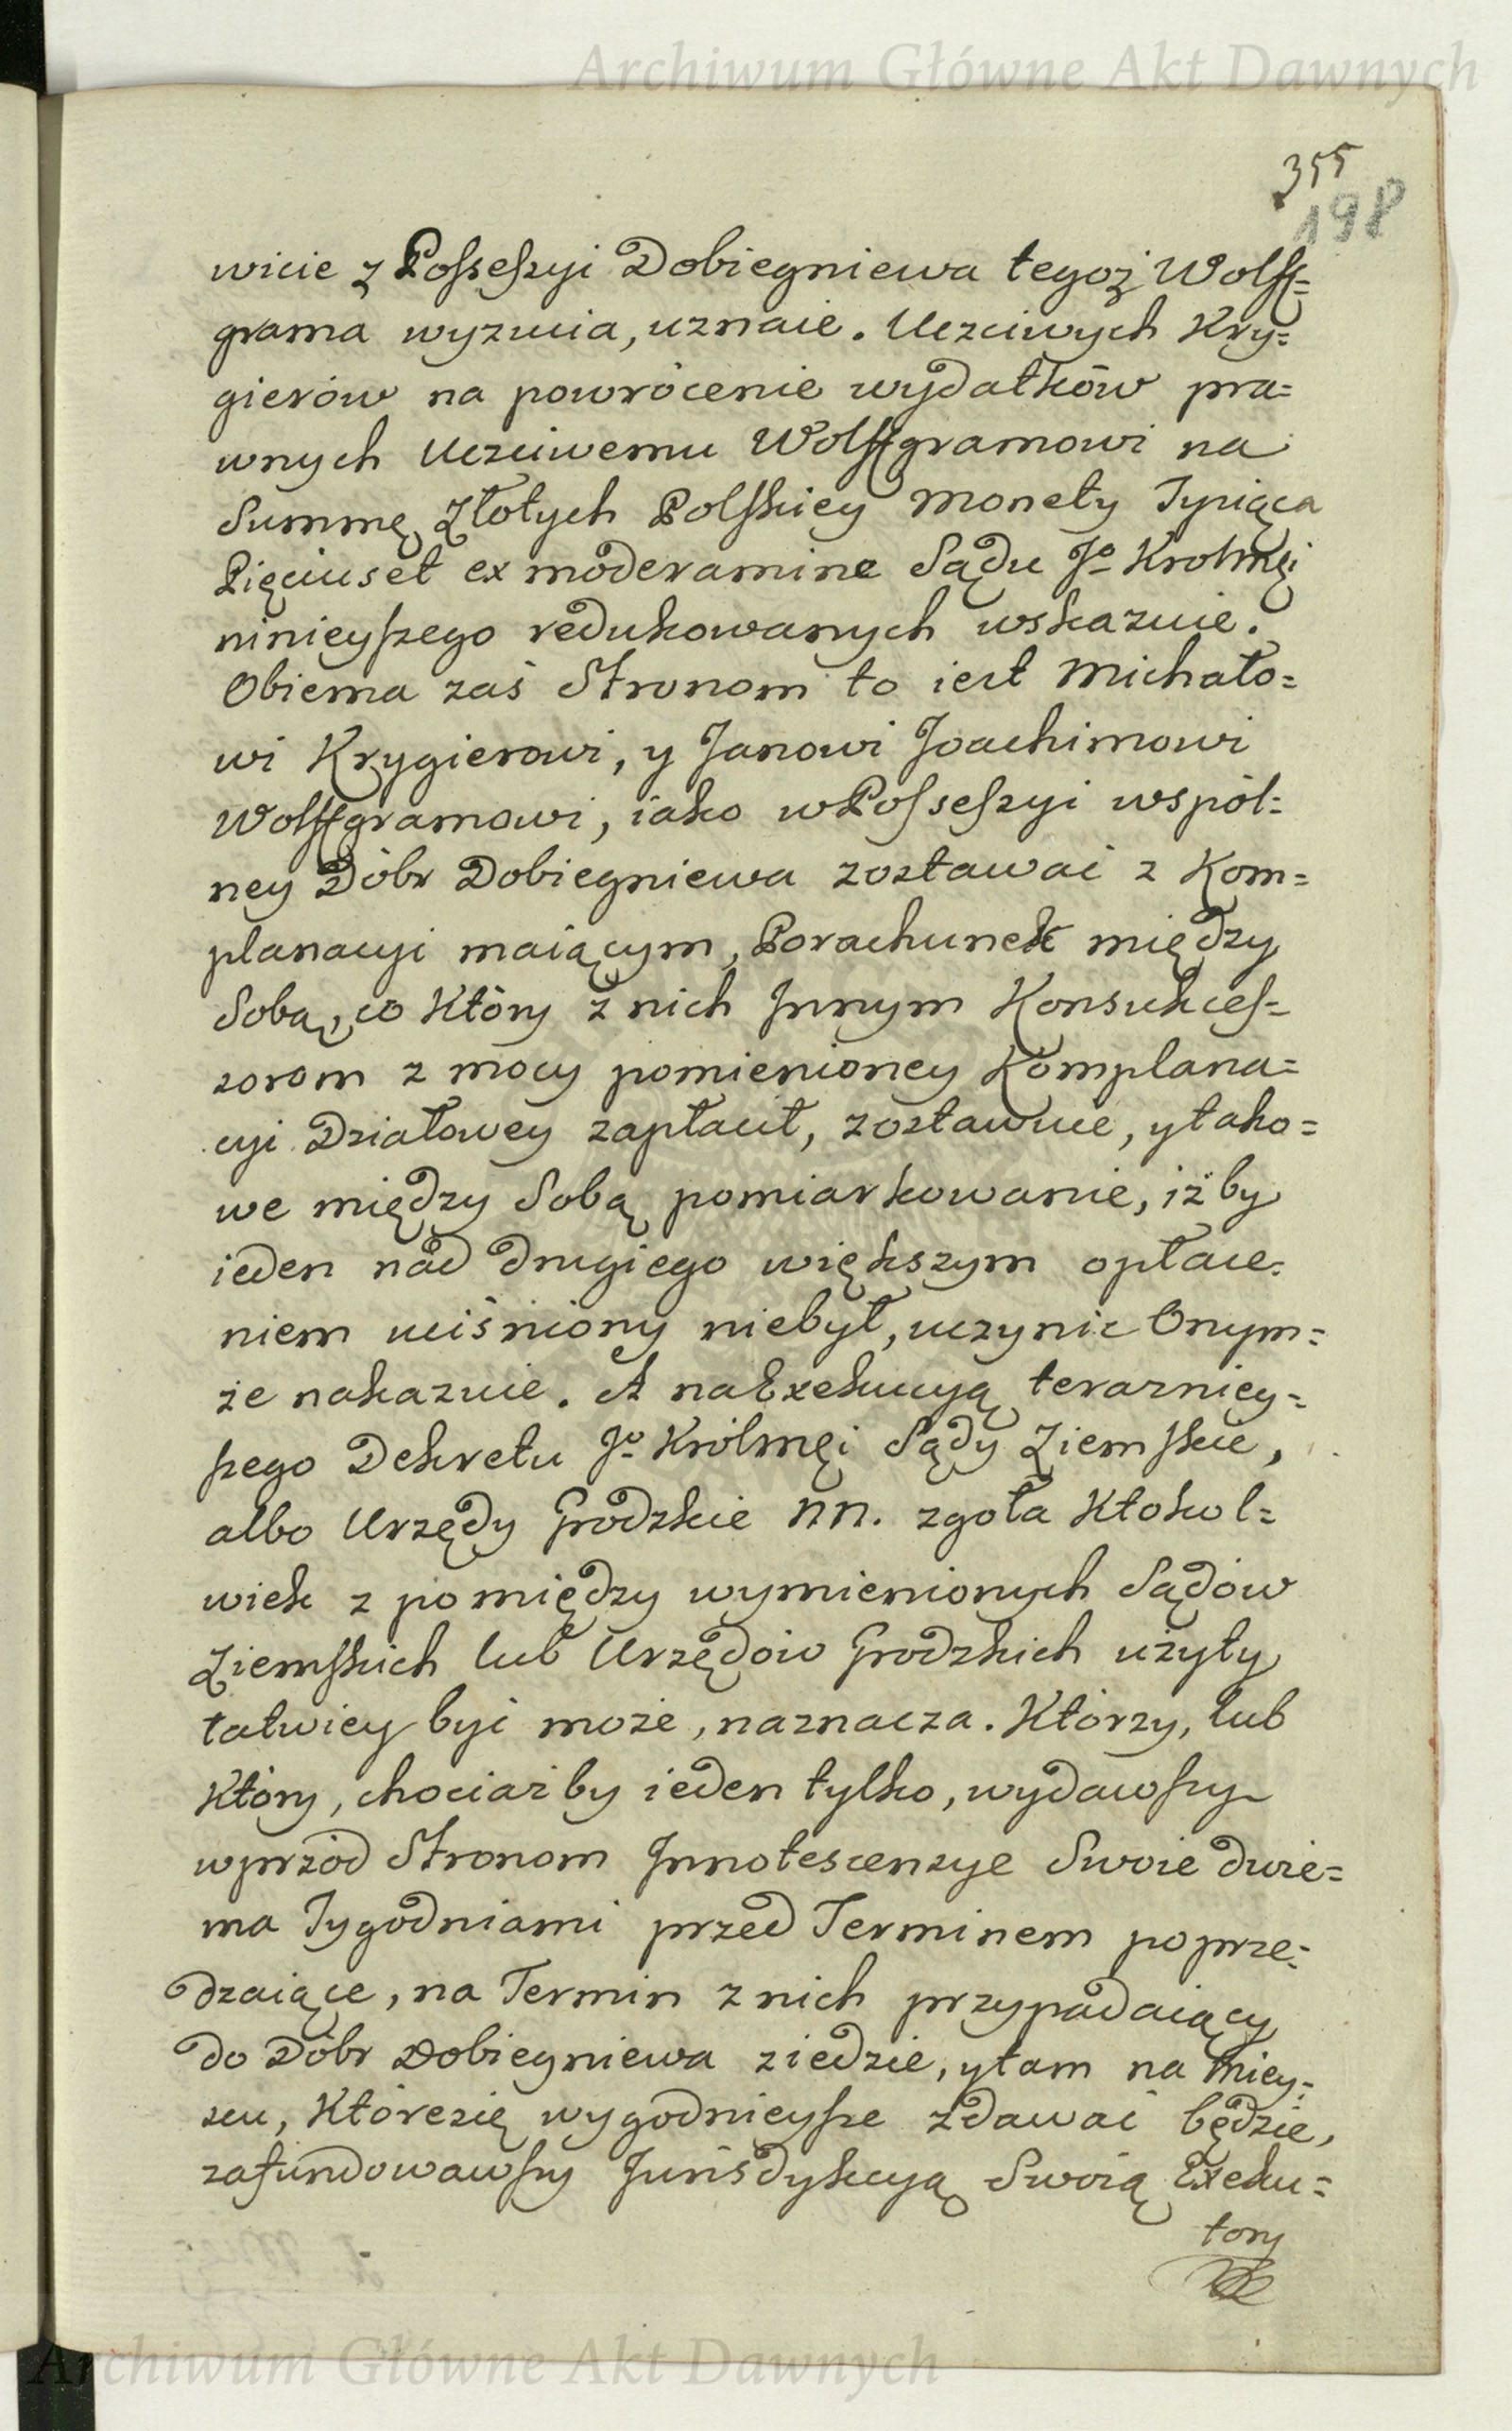 Archiwum Główne Akt Dawnych
355
198
wicie z Possessyi Dobiegniewa tegoż Wolff=
grama wyzucia, uznaie. Uczciwych Kry=
gierów na powrócenie wydatków pra=
wnych Uczciwemu Wolffgramowi na
Summę Złotych Polskiey Monety Tysiąca
Pięciuset ex moderamine Sądu Jo Krolmęi
ninieyszego redukowanych wskazuie.
Obiema zaś Stronom to iest Michało=
wi Krygierowi, y Janowi Joachimowi
Wolffgramowi, iako w Possessyi wspól=
ney Dóbr Dobiegniewa zostawać z Kom=
planacyi maiącym, Porachunek między
Sobą, co Który z nich Innym Konsukces=
sorom z mocy pomienioney Komplana=
cyi Działowey zapłacił, zostawuie, y tako=
we między Sobą pomiarkowanie, iżby
ieden nad drugiego większym opłace=
niem uciśniony niebył, uczynić Onym=
że nakazuie. A na Exekucyą teraźniey=
szego Dekretu Jo Królmęi Sądy Ziemskie,
albo Urzędy Grodzkie NN. zgoła Ktokol=
wiek z pomiędzy wymienionych Sądów
Ziemskich lub Urzędów Grodzkich użyty
łatwiey być może, naznacza. Którzy, lub
Który, chociażby ieden tylko, wydawszy
wprzód Stronom Innotescencye Swoie dwie=
ma Tygodniami przed Terminem poprze=
dzaiące, na Termin z nich przypadaiący
do Dóbr Dobiegniewa ziedzie, y tam na Miey=
scu, Które się wygodnieysze zdawać będzie,
zafundowawszy Jurisdykcyą Swoią Exeku=
tory
Archiwum Główne Akt Dawnych